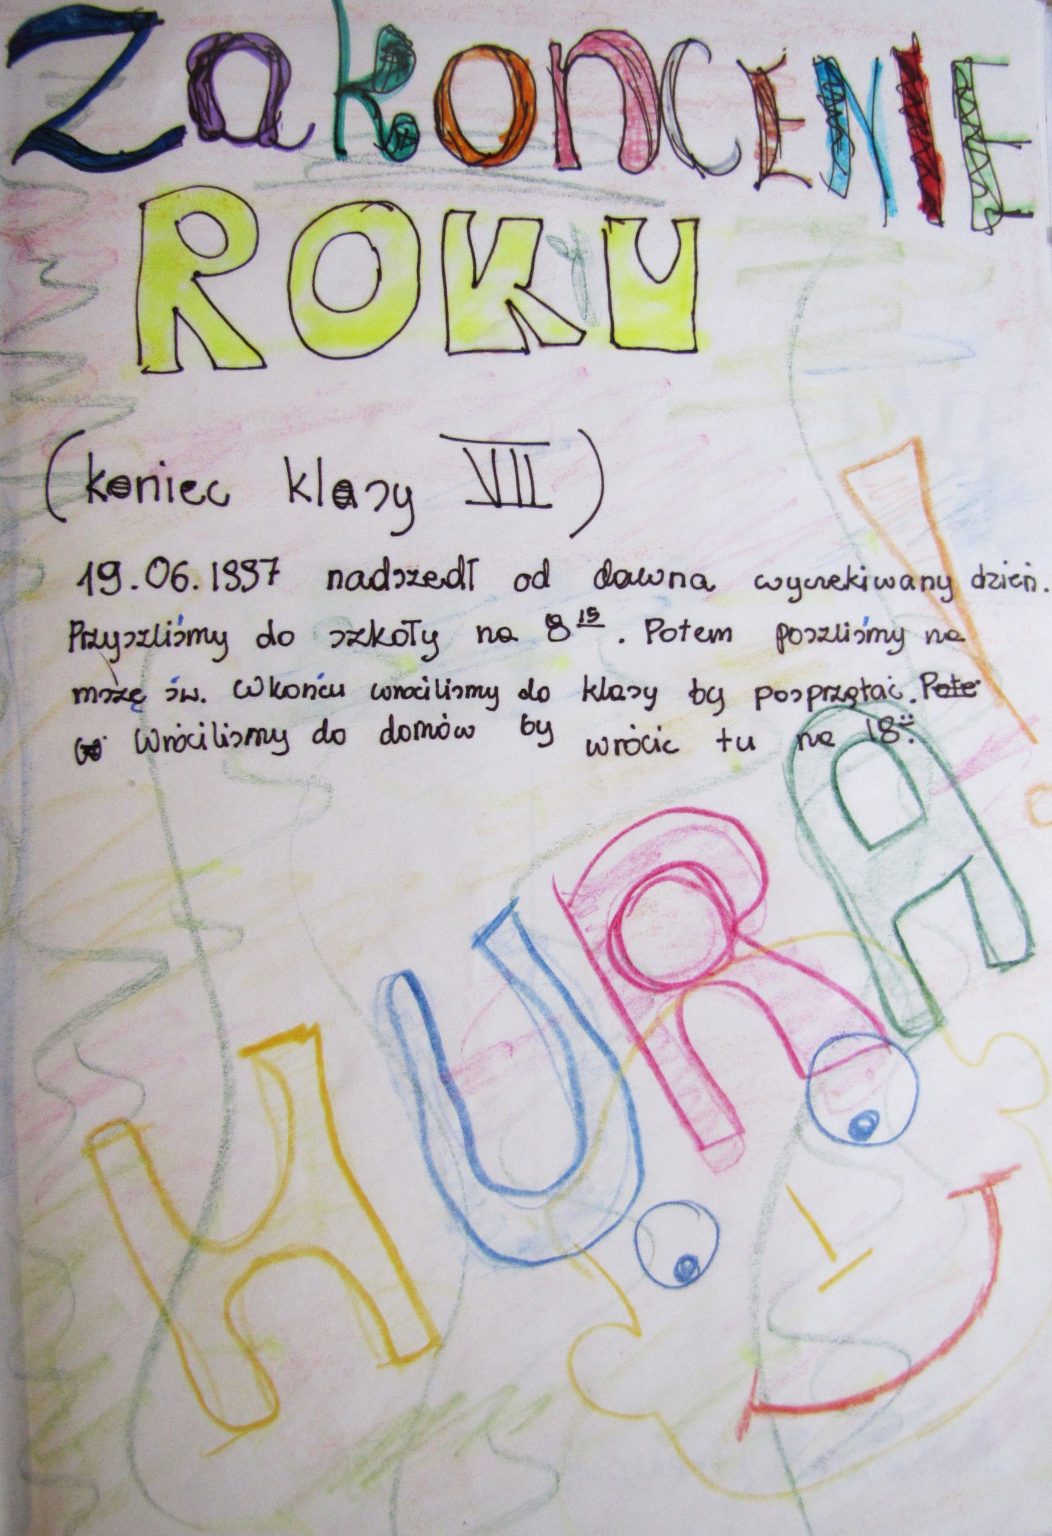 ZakoncENIE
ROKU
(koniec klasy VII)
19.06.1997 nadszedł od dawna wyczekiwany dzień.
Przyszliśmy do szkoły na 8¹⁵. Potem poszliśmy na
mszę św. Wkońcu wrocilismy do klasy by posprzątać. Pote
Wróciliśmy do domów by wrócic tu na 18
HURA!